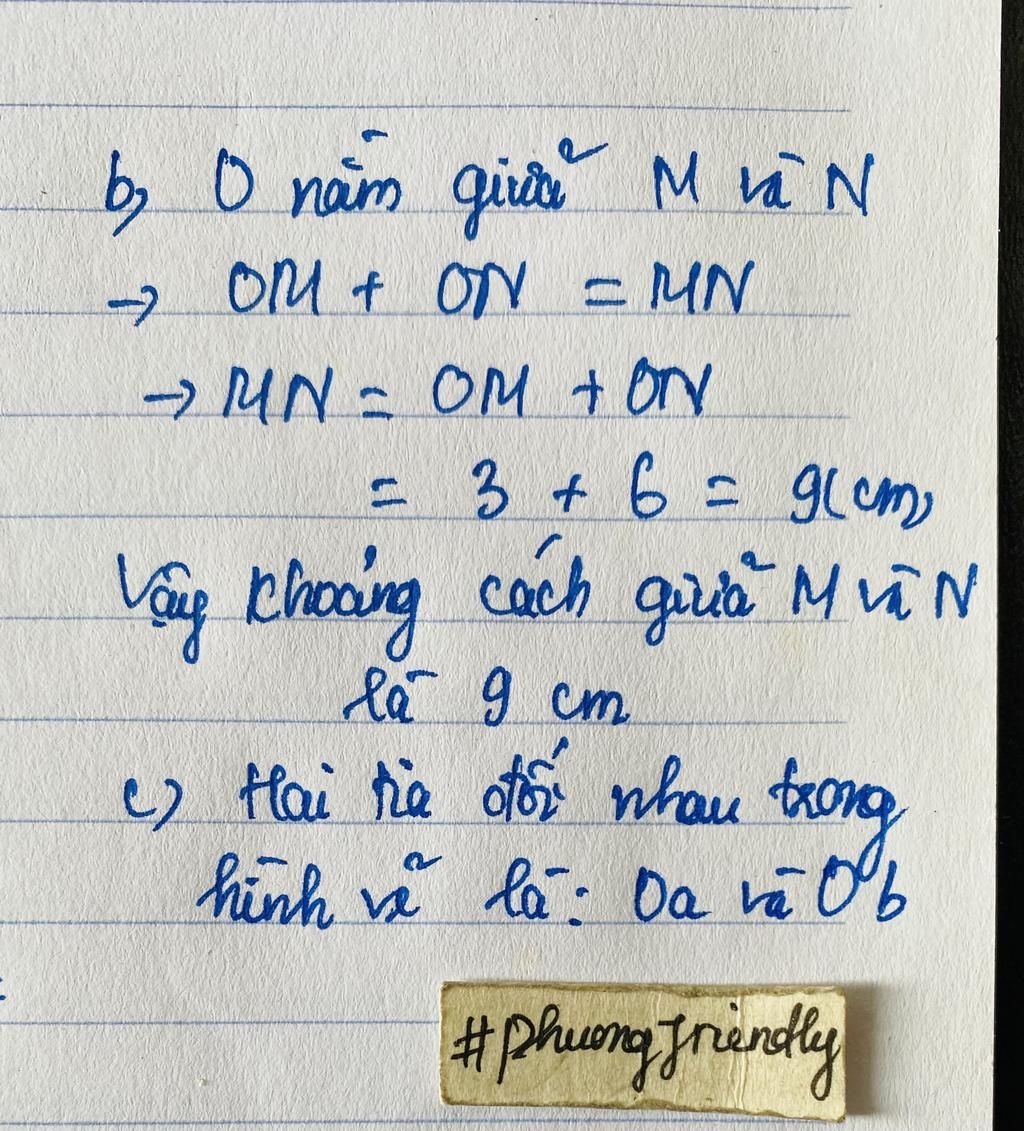 b, O nằm giữa M và N
→ OM + ON = MN
→ MN = OM + ON
= 3 + 6 = 9(cm)
Vậy khoảng cách giữa M và N
là 9 cm
c) Hai tia đối nhau trong
hình vẽ là: Oa và Ob
#Phuongfriendly